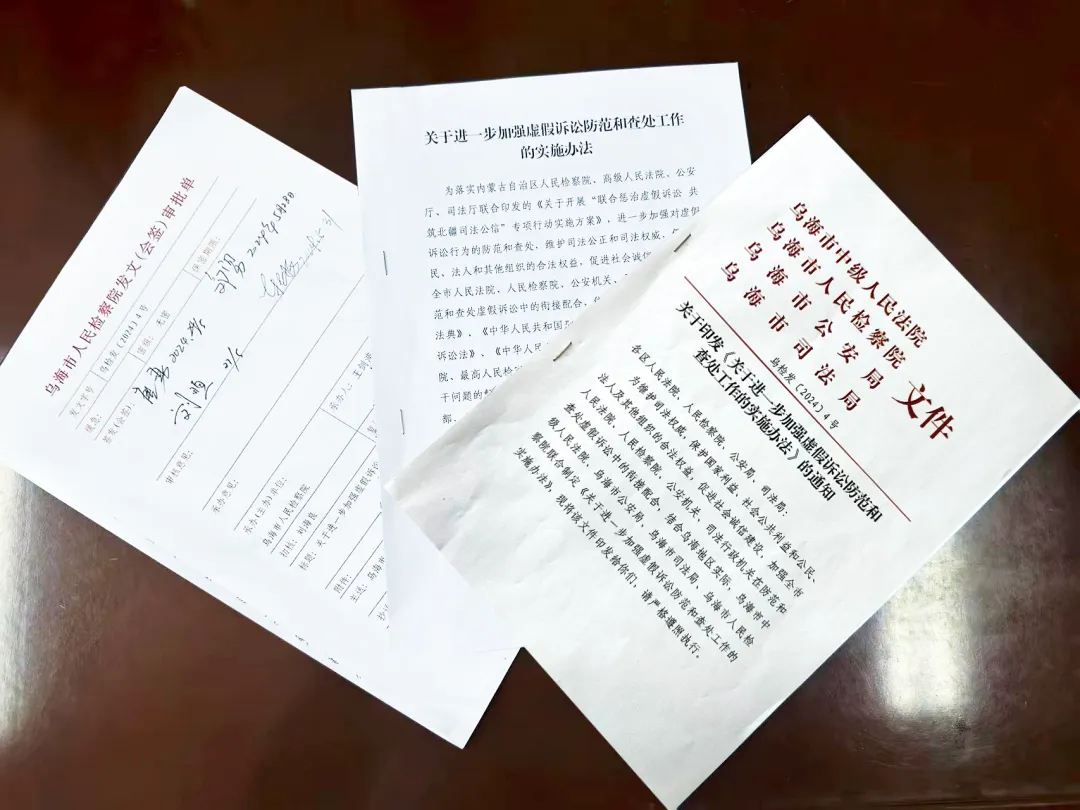 乌海市人民检察院发文(会签)审批单
发文字号
乌检发〔2024〕4号
密级：无密
保签期限：
缓急：
签发(会签)：
2024年5月28日
2024.5.31
2024.5/5
刘
31/5
审核意见：
承办意见：
承办(主办)单位：
乌海市人民检察院
承办人：王剑
初核：刘海泉
标题：关于进一步加强虚假诉讼
附件：
主送：乌海
关于进一步加强虚假诉讼防范和查处工作
的实施办法
为落实内蒙古自治区人民检察院、高级人民法院、公安
厅、司法厅联合印发的《关于开展“联合惩治虚假诉讼 共
筑北疆司法公信”专项行动实施方案》，进一步加强对虚假
诉讼行为的防范和查处，维护司法公正和司法权威，
民、法人和其他组织的合法权益，促进社会诚信
全市人民法院、人民检察院、公安机关、
范和查处虚假诉讼中的衔接配合，
法典》、《中华人民共和国
诉讼法》、《中华人
院、最高人民检
干问题的
部、
乌海市中级人民法院
乌海市人民检察院
乌海市公安局
乌海市司法局
文件
乌检发〔2024〕4号
关于印发《关于进一步加强虚假诉讼防范和
查处工作的实施办法》的通知
各区人民法院、人民检察院、公安局、司法局：
为维护司法权威，保护国家利益、社会公共利益和公民、
法人及其他组织的合法权益，促进社会诚信建设，加强全市
人民法院、人民检察院、公安机关、司法行政机关在防范和
查处虚假诉讼中的衔接配合，结合乌海地区实际，乌海市中
级人民法院、乌海市公安局、乌海市司法局、乌海市人民检
察院联合制定《关于进一步加强虚假诉讼防范和查处工作的
实施办法》，现将该文件印发给你们，请严格遵照执行。